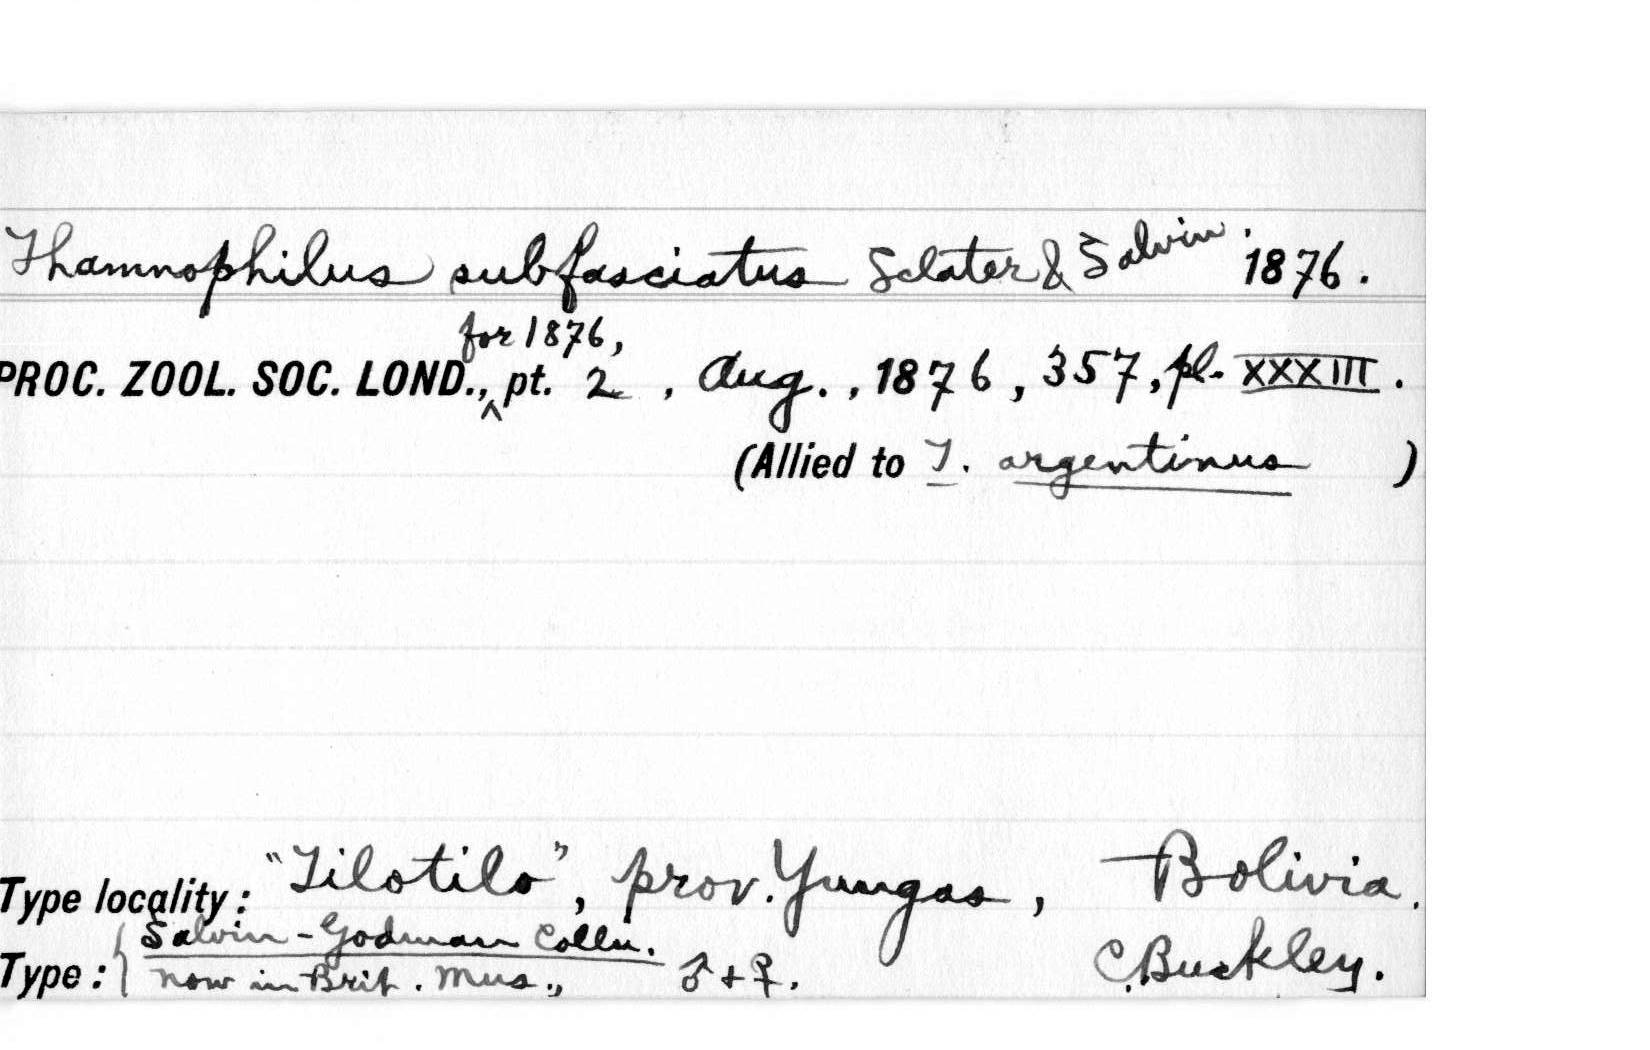 Thamnophilus subfasciatus Sclater & Salvin. 1876.
for 1876,
PROC. ZOOL. SOC. LOND., ^ pt. 2 , Aug. , 1876 , 357, pl. XXXIII .
(Allied to T. argentinus )
Type locality: "Tilotilo", prov. Yungas , Bolivia.
Salvin-Godman Colln.
Type: { now in Brit. Mus., ♂ + ♀. C. Buckley.